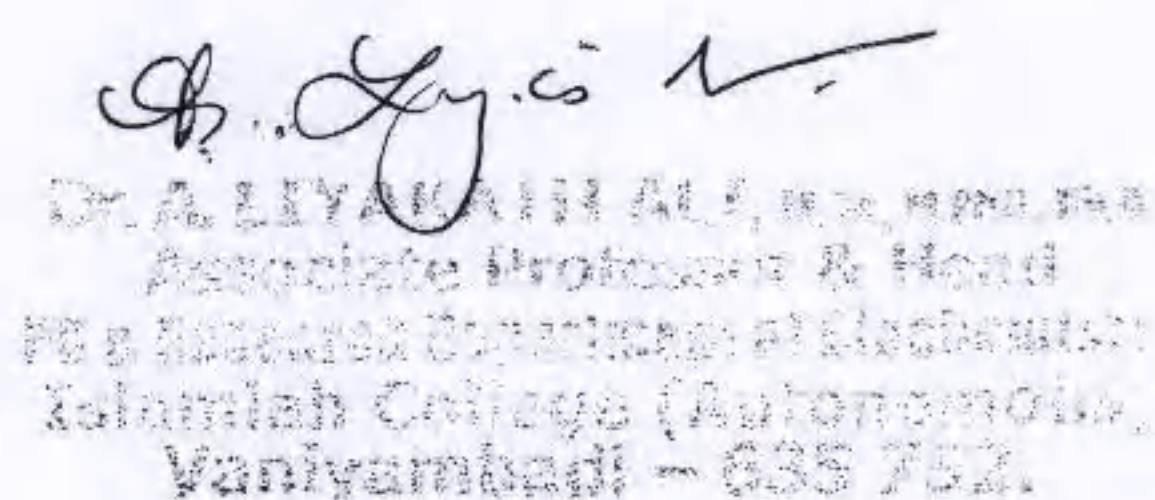 Dr. A. LIYAKATH ALI,
Associate Professor & Head
PG & Research Department of Biochemistry
Islamiah College (Autonomous)
Vaniyambadi - 635 752.